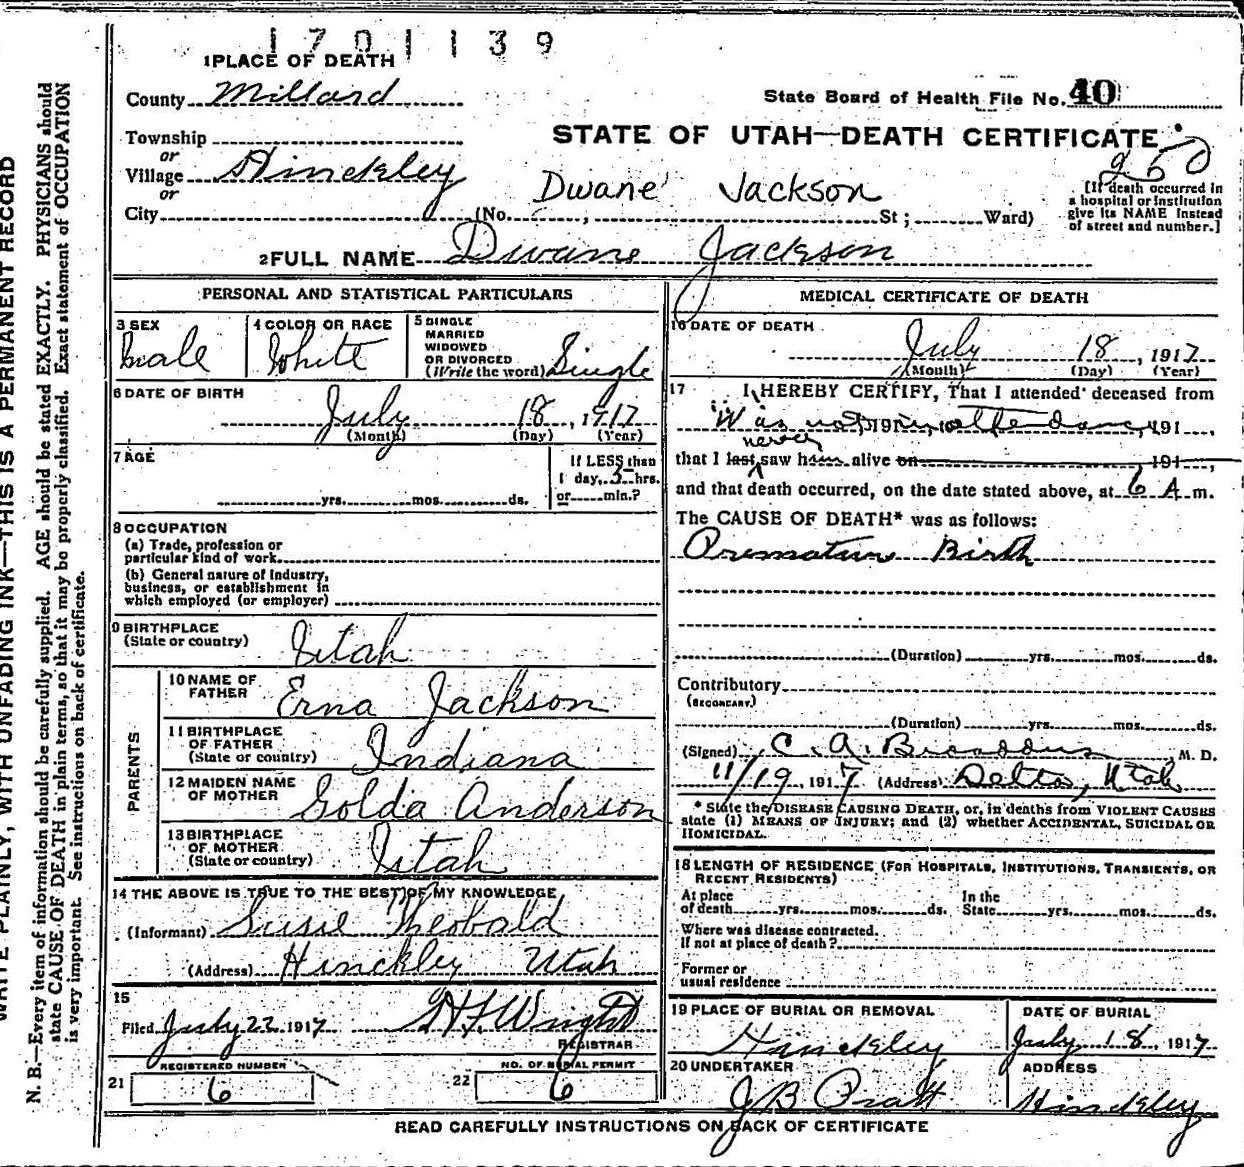 1701139
1 PLACE OF DEATH
County Millard
State Board of Health File No. 40
Township
STATE OF UTAH—DEATH CERTIFICATE
or
Village Hinckley
250
or
Dwane Jackson
City (No. , St ; Ward)
[If death occurred in
a hospital or institution
give its NAME instead
of street and number.]
2 FULL NAME Dwane Jackson
PERSONAL AND STATISTICAL PARTICULARS
3 SEX
male
4 COLOR OR RACE
White
5 SINGLE
MARRIED
WIDOWED
OR DIVORCED
(Write the word) Single
6 DATE OF BIRTH
July 18, 1917
(Month) (Day) (Year)
7 AGE
yrs. mos. ds.
If LESS than
1 day, 5 hrs.
or min.?
8 OCCUPATION
(a) Trade, profession or
particular kind of work
(b) General nature of Industry,
business, or establishment in
which employed (or employer)
9 BIRTHPLACE
(State or country) Utah
PARENTS
10 NAME OF
FATHER Erna Jackson
11 BIRTHPLACE
OF FATHER
(State or country) Indiana
12 MAIDEN NAME
OF MOTHER Golda Anderson
13 BIRTHPLACE
OF MOTHER
(State or country) Utah
14 THE ABOVE IS TRUE TO THE BEST OF MY KNOWLEDGE
(Informant) Susie Theobald
(Address) Hinckley Utah
15
Filed July 22 1917 H.F. Wright
REGISTRAR
REGISTERED NUMBER
21 6
NO. OF BURIAL PERMIT
22 6
MEDICAL CERTIFICATE OF DEATH
16 DATE OF DEATH
July 18, 1917
(Month) (Day) (Year)
17 I HEREBY CERTIFY, That I attended deceased from
Was not, 191 , in attendance, 191 ,
never
that I last saw him alive on 191 ,
and that death occurred, on the date stated above, at 6 A m.
The CAUSE OF DEATH* was as follows:
Premature Birth
(Duration) yrs. mos. ds.
Contributory
(SECONDARY)
(Duration) yrs. mos. ds.
(Signed) C. A. Broaddus M. D.
11/19, 1917 (Address) Delta, Utah
* State the DISEASE CAUSING DEATH, or, in deaths from VIOLENT CAUSES
state (1) MEANS OF INJURY; and (2) whether ACCIDENTAL, SUICIDAL OR
HOMICIDAL.
18 LENGTH OF RESIDENCE (FOR HOSPITALS, INSTITUTIONS, TRANSIENTS, OR
RECENT RESIDENTS)
At place
of death yrs. mos. ds.
In the
State yrs. mos. ds.
Where was disease contracted.
If not at place of death?
Former or
usual residence
19 PLACE OF BURIAL OR REMOVAL
Hinckley
DATE OF BURIAL
July 18, 1917
20 UNDERTAKER
J B Pratt
ADDRESS
Hinckley
READ CAREFULLY INSTRUCTIONS ON BACK OF CERTIFICATE
WRITE PLAINLY, WITH UNFADING INK—THIS IS A PERMANENT RECORD
N. B.—Every item of information should be carefully supplied. AGE should be stated EXACTLY. PHYSICIANS should
state CAUSE OF DEATH in plain terms, so that it may be properly classified. Exact statement of OCCUPATION
is very important. See instructions on back of certificate.